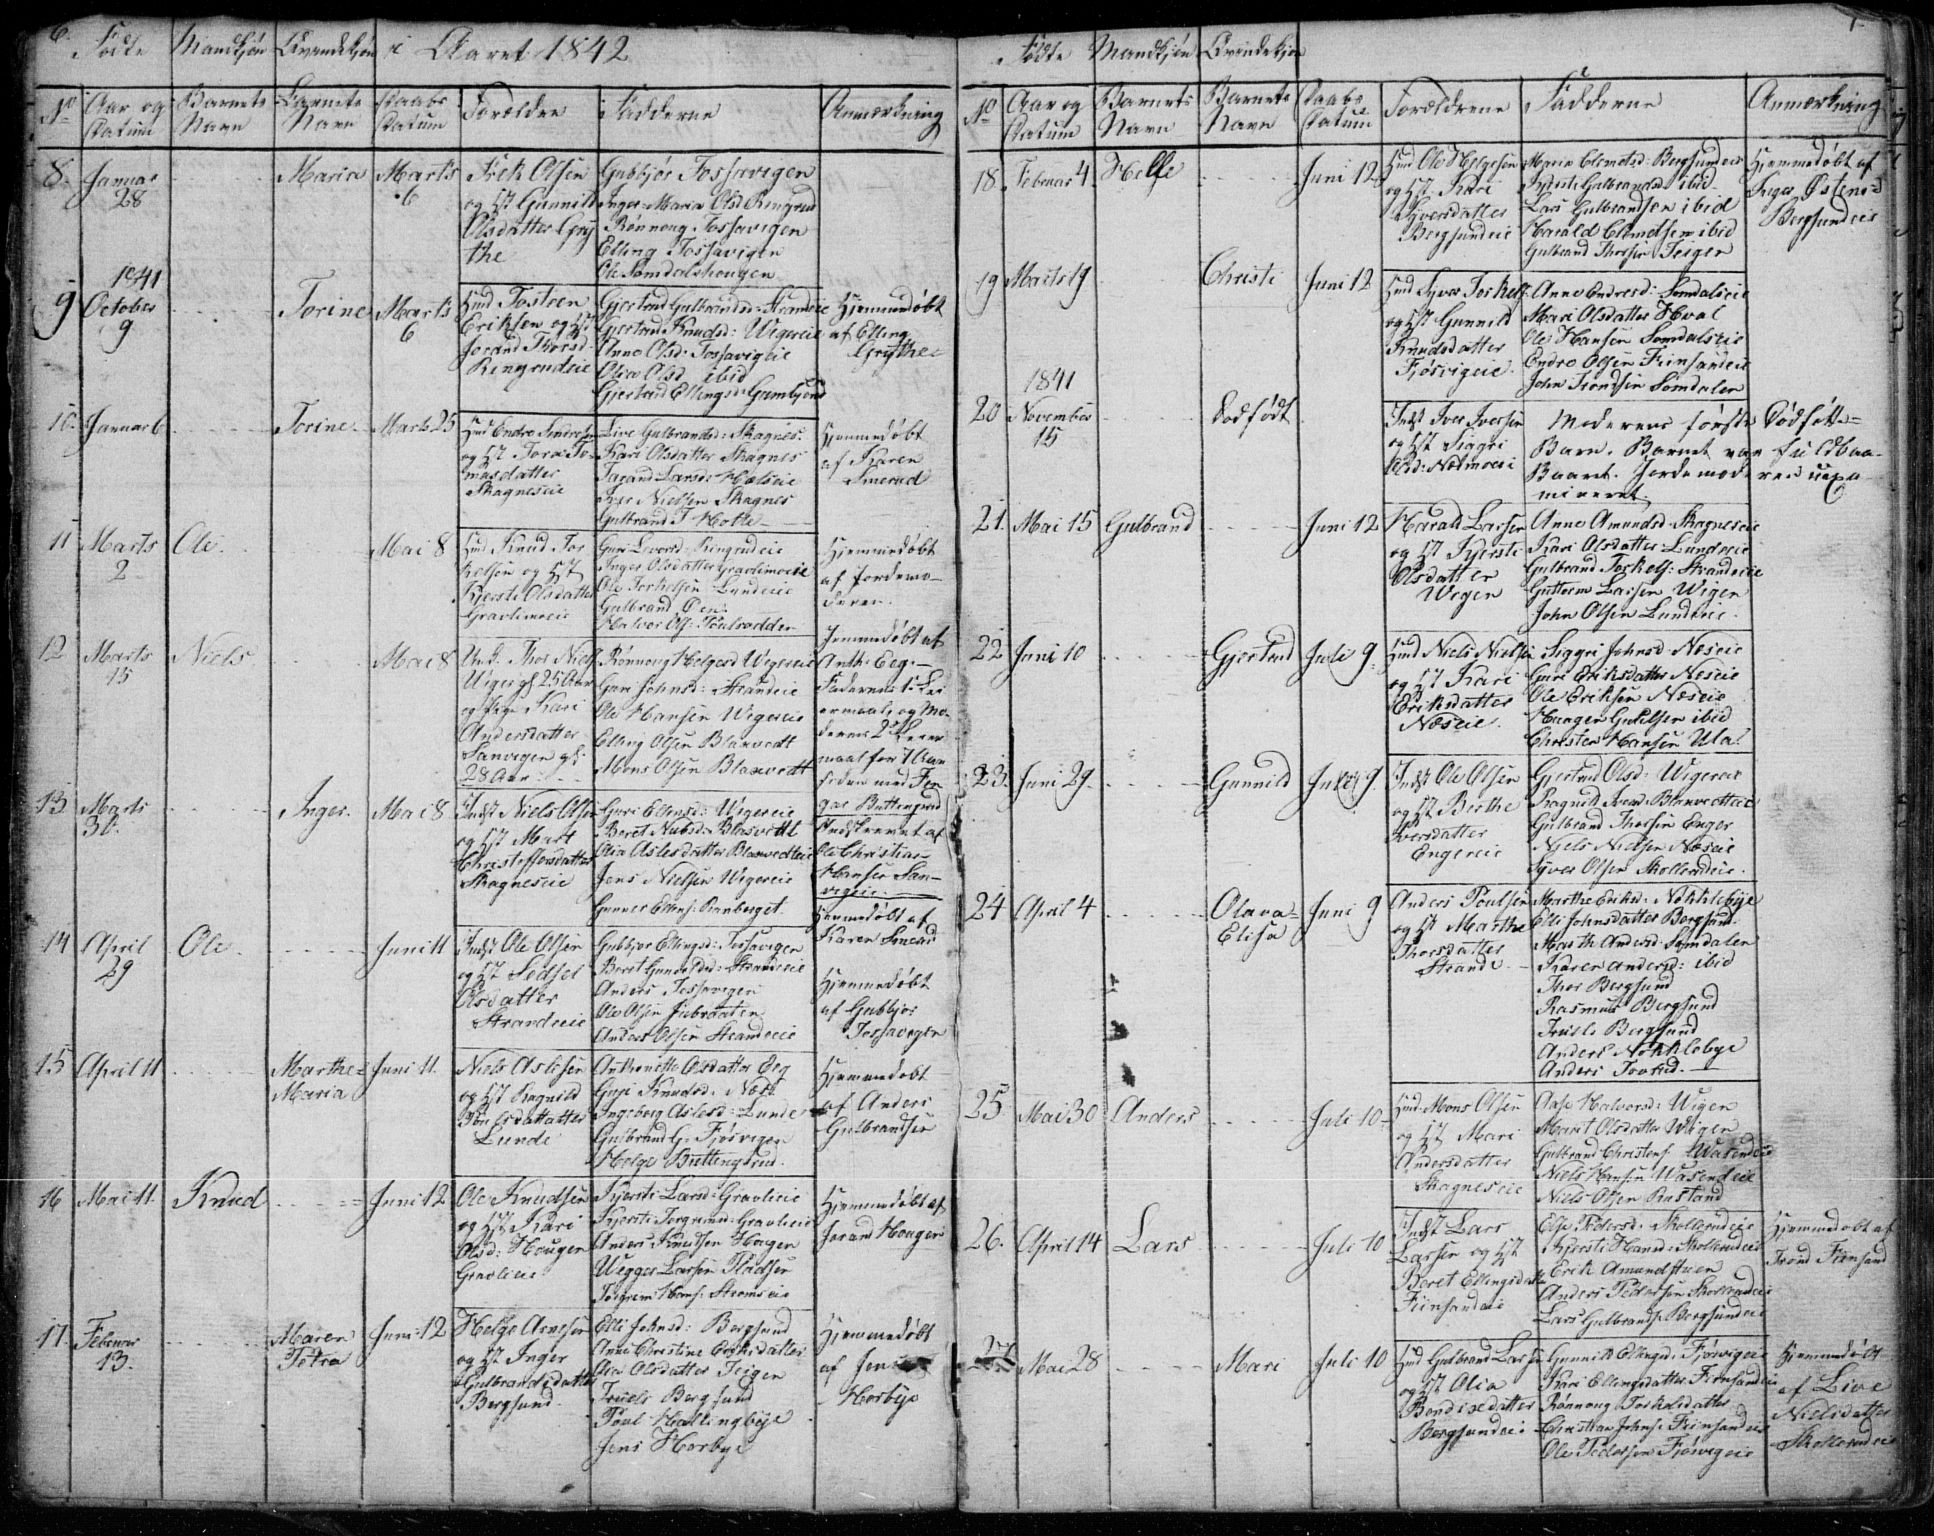 6.
Fødte Mandkjøn Qvindekjøn i Aaret 1842
No Aar og Datum
Barnets Navn
Barnets Navn
Daabs Datum
Forældre
Fadderne
Anmærkning
8. Januar 28
Maria
Marts 6
Erik Olsen
og H: Gunnild
Olsdatter Gry
the
Gubbjør Tossevigen
Inger Maria Olsd Ringrud
Rønnoug Tossavigen
Elling Tossavigen
Ole Somdalshougen
9 1841 October 9
Torine
Marts 6
Huusmd Tosten
Eriksen og H:
Jorand Thorsd:
Ringrudeie
Gjertrud Gulbrandsd: Strandeie
Gjertrud Knudsd: Wigereie
Anne Olsd: Tossavigeie
Olea Olsd ibid
Gjertrud Ellingsd:
Hjemmedøbt
af Elling
Grythe
10. Januar 6
Torine
Marts 25
Huusmd Endre
og H: Tora To-
masdatter
Skagneseie
Live Gulbrandsd: Skagnes.
Kari Olsdatter Skagnes
Iver Nielsen Skagnes
Gulbrand T.
Hjemmedøbt
af Karen
Smerud
11 Marts 2
Ole
Mai 8
Huusmd Knud Tor
kelsen og H:
Kjersti Olsdatter
Gravlimoeie
Guri Ringrudeie
Inger Olsdatter Gravlimoeie
Ole Torkelsen Lundeie
Gulbrand
Halvor Ols:
Hjemmedøbt
af Jordemo-
deren.
12 Marts 15
Niels
Mai 8
Unk. Thor Niels
Wiger gl 25 Aar
og Pige Kari
Andersdatter
Sanvigen gl.
28 Aar
Rønnoug Helgesd Wigereie
Guri Johnsd: Strandeie
Ole Hansen Wigereie
Elling Olsen Blaxvedt
Mons Olsen Blaxvedt
Hjemmedøbt af
Anth: Eeg.
Faderens 1ste Lei
ermaal, og Mo-
derens 2det Leier
maal for 7 Aar
siden med
13 Marts 30.
Inger.
Mai 8
Indst Niels Olsen
og H: Mart
Christoffersdatter
Skagneseie
Guri Ellensd: Wigereie
Beret Blaxvedt
Olia Aslesdatter Blaxvedteie
Jens Nielsen Wigereie
Gunner Ellens:
Ole Christian
Hansen San-
vigeie.
Hjemmedøbt af
Karen Smerud
14 April 29
Ole
Juni 11
Indst Ole Olsen
og H: Sidsel
Olsdatter
Strandeeie
Gubbjør Ellingsd: Tossavigen
Beret Strandeeie
Anders Tossavigen
Ole Olsen
Anders Olsen Strandeeie
Hjemmedøbt
af Gubbjør
Tossavigen
15 April 11
Marthe Maria
Juni 11.
Niels Aslesen
og H: Ragnild
Lunde
Anthonette Olsdatter Eeg
Guri Knudsd: Næss
Ingeborg Aslesd: Lunde
Gulbrand G: Fjøsvigen
Helge Buttingsrud.
Hjemmedøbt
af Anders
Gulbrandsen
16 Mai 11.
Knud
Juni 12
Ole Knudsen
og H: Kari
Olsd: Hougen
Gravlieie.
Kjersti Larsd: Gravlieie
Kjersti Gravlieie
Anders Knudsen Hougen
Wegger Larsen
Torgrim Hans: Strømseie
Hjemmedøbt af
Jorand Hougen
17. Februar 13.
Maren Petra
Juni 12
Helge Arnesen
og H: Inger
Gulbrandsdatter
Bergsund.
Elli Johnsd: Bergsund
Anne Christine Eriksdatter
Olia Olsdatter Teigen
Truels Bergsund
Poul Hallingbye
Jens Horbye
Hjemmedøbt
af Jens
Horbye
7.
Fødte Mandkjøn Qvindekjøn
No Aar og Datum
Barnets Navn
Barnets Navn
Daabs Datum
Forældrene
Fadderne
Anmærkning
18. Februar 4.
Helge
Juni 12
Huusmd Ole Helgesen
og H: Kari
Syversdatter
Bergsundeie
Maria Clemetsd: Bergsundeie
Kjersti Gulbrandsd ibid
Lars Gulbrandsen ibid
Harald Clemetsen ibid
Gulbrand Thorsen Teigen
Hjemmedøbt af
Bergsundeie
19 Marts 19
Christi
Juni 12
Huusmd Syver Torkels:
og H: Gunnild
Knudsdatter
Fjøsvigeie
Anne Endresd: Somdalseie
Mari Olsdatter Hval
Ole Hansen Somdalseie
Endre Olsen Finsandeie
John Trondsen Somdalen
20 1841 November 15
Dødfødt
Indst Iver Iversen
og H: Siagri
Olsd: Næsmoeie
Moderens første Dødfødte
Barn. Barnet var fuldbaa-
baaret. Jordemoderen exa-
mineret.
21. Mai 15
Gulbrand
Juni 12
Harald Larsen
og H: Kjersti
Olsdatter
Wigen
Anne Amundsd. Skagneseie
Kari Olsdatter Lundeeie
Gulbrand Torkels: Strandeeie
Guttorm Larsen Wigen
John Olsen Lundeie.
22 Juni 10
Gjertrud
Juli 9.
Huusmd Niels Nielsen
og H: Kari
Eriksdatter
Næseie.
Siggri Johnsd Næseie
Guri Eriksdatter Næseie
Ole Eriksen Næseie
ibid
Christen Hansen Ula.
23. Juni 29.
Gunnild
Juli 9.
Indst Ole Olsen
og H: Berthe
Iversdatter
Engereie
Gjertrud Olsd: Wigereie
Ragnild Blaxvedteie
Gulbrand Thorsen Enger
Niels Nielsen Næseie
Syver Olsen Skollerudeie.
24 April 4
Olava Elisa
Juni 9
Anders Poulsen
og H: Marthe
Thorsdatter
Strande.
Marthe Eriksd: Nøkklebye
Elli Johnsdatter Bergsund.
Marth Andersd: Somdalen
Karen Andersd: ibid
Thor Bergsund
Rasmus Bergsund
Truels Bergsund
Anders Nøkklebye
Anders
25. Mai 30
Anders
Juli 10
Huusmd Mons Olsen
og H: Mari
Andersdatter
Skagneseie
Aase Halvorsd: Wigen
Marit Olsdatter Wigen
Gulbrand Christens: Wasendeie
Niels Hansen Wasendeie
Niels Olsen Rustand
26. April 14
Lars
Juli 10
Indst Lars
Larsen og H:
Beret Ellingsdatt
Finsandeie
Else Pedersd: Skollerudeie
Kjersti Hansd: Skollerudeie
Erik Amundstuen
Anders Pedersen Skollerudeie
Lars Gulbrands: Bergsundeie
Hjemmedøbt af
Trond Finsand
27 Mai 28
Mari
Juli 10
Huusmd Gulbrand Larsen
og H: Olia
Bendixdatter
Bergsundeie
Gunnild Ellingsd: Fjøsvigeie
Kari Ellingsdatter Finsandeie
Rønnoug Torkelsdatter
Christian Johns: Finsandeie
Ole Pedersen Fjøsvigeie
Hjemmedøbt
af Live
Nielsdatter
Skollerudeie